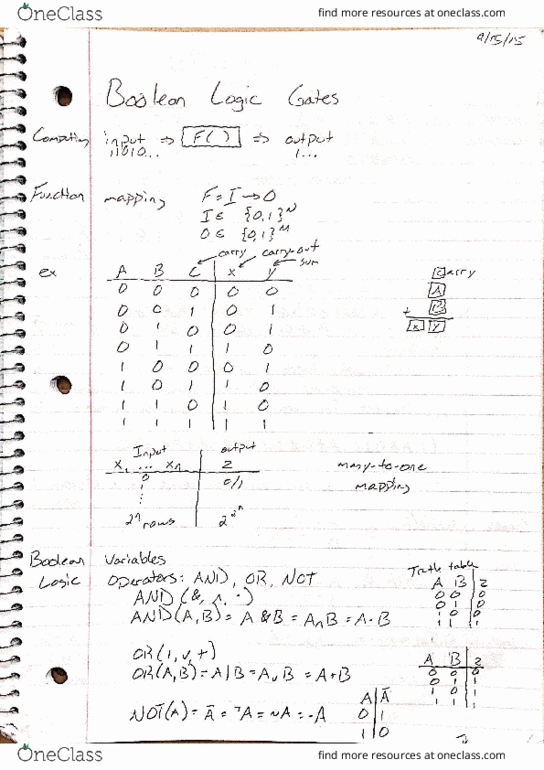 OneClass
find more resources at oneclass.com
9/15/15
Boolean Logic Gates
Computing input ⇒ F( ) ⇒ output
11010... 1...
Function mapping F = I → O
I ∈ {0,1}^N
O ∈ {0,1}^M
carry carry-out sum
ex A B C x y
0 0 0 0 0
0 0 1 0 1
0 1 0 0 1
0 1 1 1 0
1 0 0 0 1
1 0 1 1 0
1 1 0 1 0
1 1 1 1 1
Carry
A
+ B
x y
Input output
x₁ ... xₙ z
0 0/1
2ⁿ rows 2^2ⁿ
many-to-one
mapping
Boolean Logic
Variables
Operators: AND, OR, NOT
AND (&, ∧, ·)
AND(A,B) = A & B = A∧B = A·B
Truth table
A B z
0 0 0
0 1 0
1 0 0
1 1 1
OR(|, ∨, +)
OR(A,B) = A|B = A∨B = A+B
A B z
0 0 0
0 1 1
1 0 1
1 1 1
NOT(A) = Ā = ¬A = ~A = -A
A Ā
0 1
1 0
OneClass
find more resources at oneclass.com